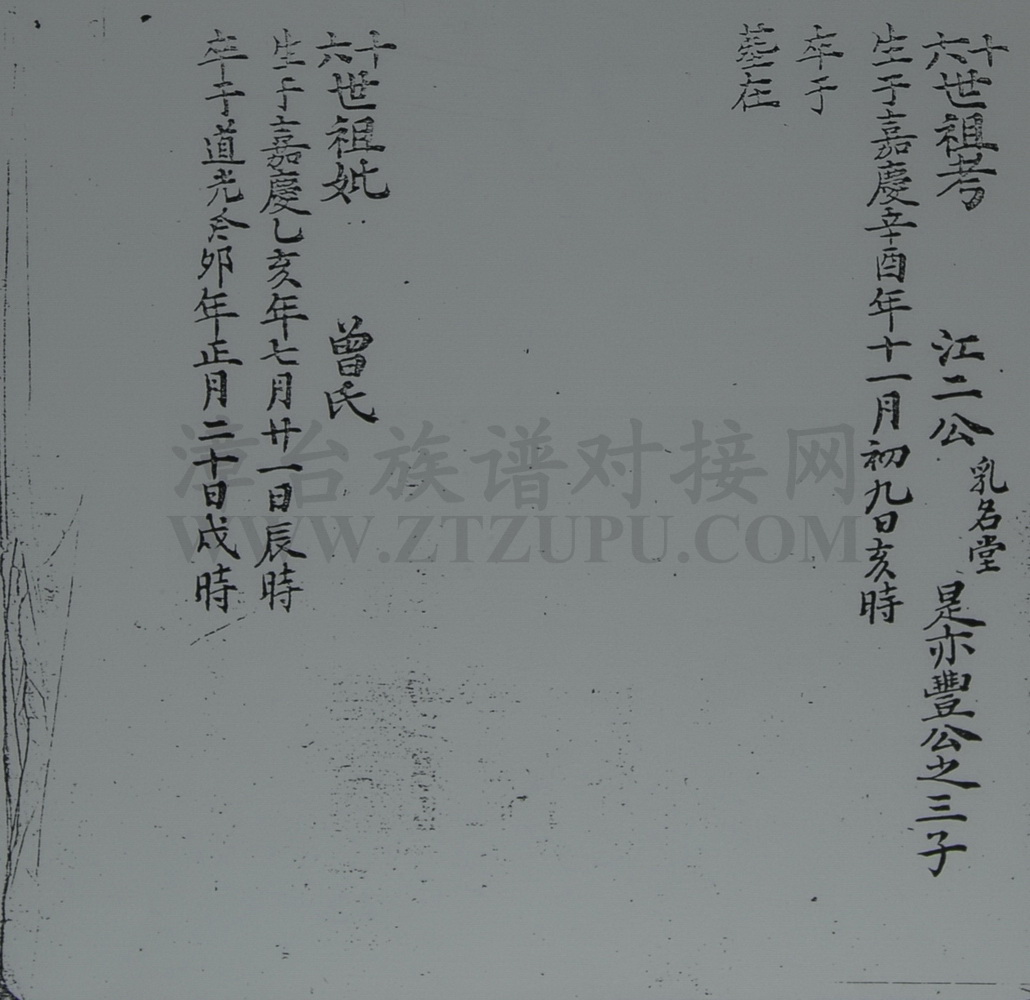 十六世祖考 江二公 乳名堂 是亦豐公之三子
生于嘉慶辛酉年十一月初九日亥時
卒于
墓在
十六世祖妣 曾氏
生于嘉慶乙亥年七月廿一日辰時
卒于道光癸卯年正月二十日戌時
漳台族谱对接网
WWW.ZTZUPU.COM